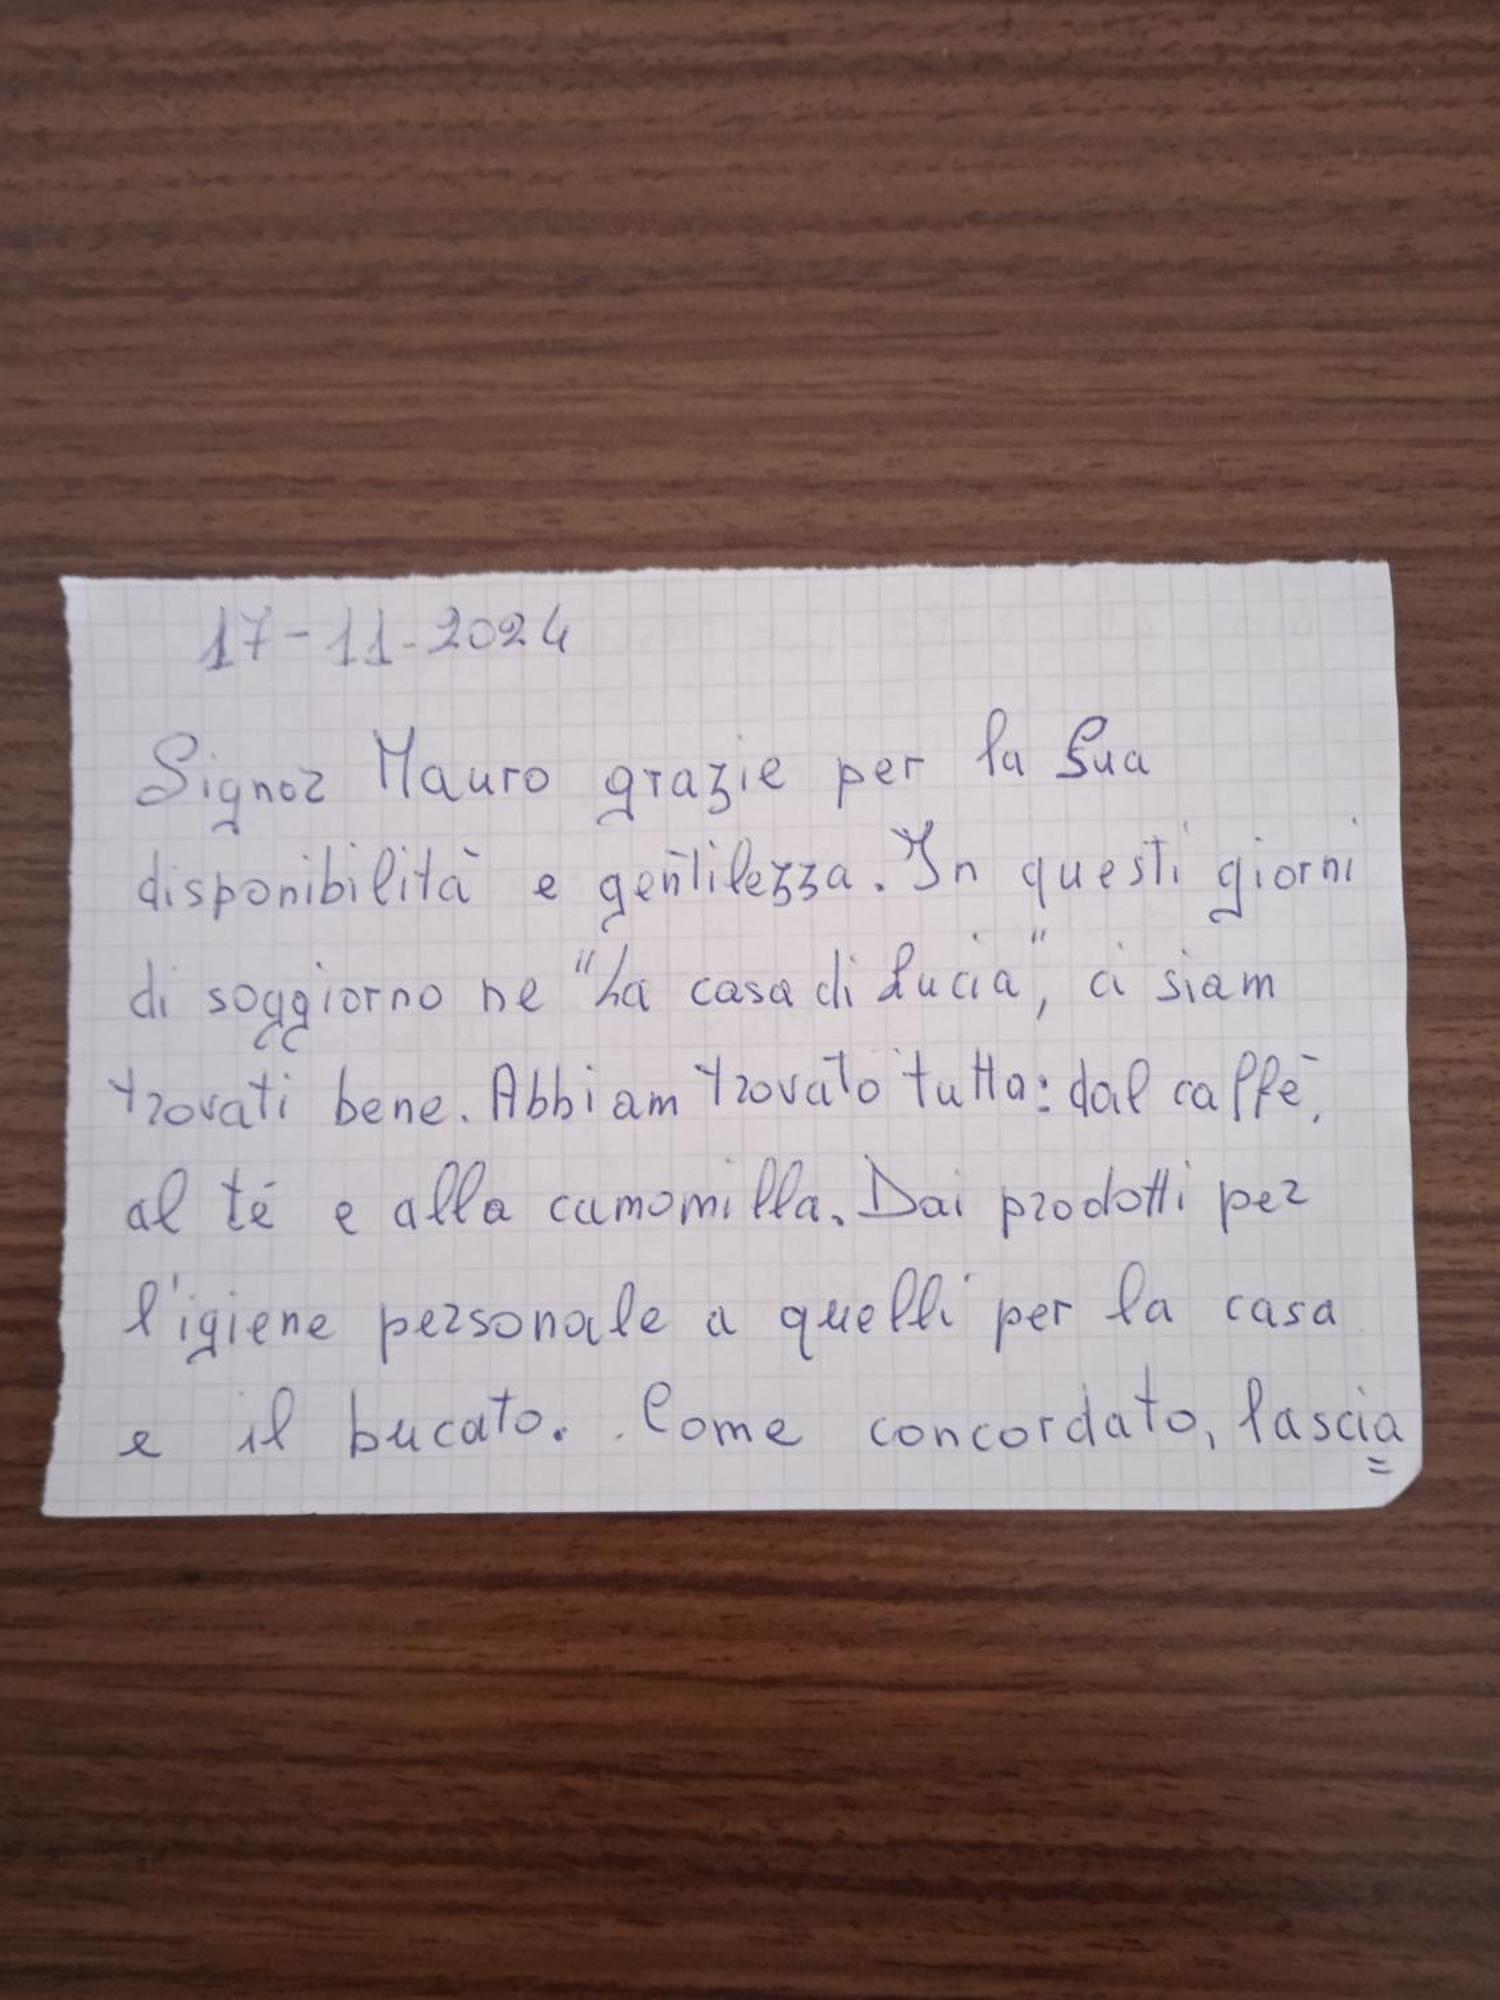 17-11-2024
Signor Mauro grazie per la Sua
disponibilità e gentilezza. In questi giorni
di soggiorno ne "La casa di Lucia", ci siam
trovati bene. Abbiam trovato tutto: dal caffè,
al té e alla camomilla. Dai prodotti per
l'igiene personale a quelli per la casa
e il bucato. Come concordato, lascia
=